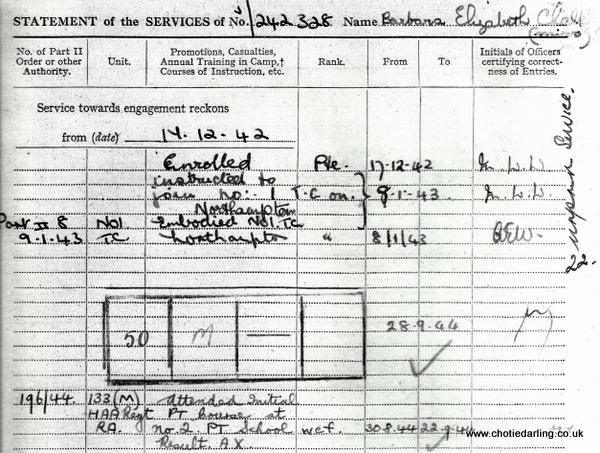 STATEMENT of the SERVICES of No. W/242328 Name Barbara Elizabeth
No. of Part II Order or other Authority. Unit. Promotions, Casualties, Annual Training in Camp,† Courses of Instruction, etc. Rank. From To Initials of Officers certifying correctness of Entries.
Service towards engagement reckons
from (date) 17.12.42
Enrolled Pte. 17-12-42
instructed to
join no: 1 T.C on. 8-1-43.
Northampton
Part II 8 No1 Embodied No1.TC
9.1.43. TC Northampton " 8/1/43
50 M — 28.9.44
196/44. 133 (M) Attended Initial
HAA Regt PT Course at
RA. No. 2. PT School w.e.f. 30.8.44 22.9.44
Result. AX.
22. Service.
www.chotiedarling.co.uk